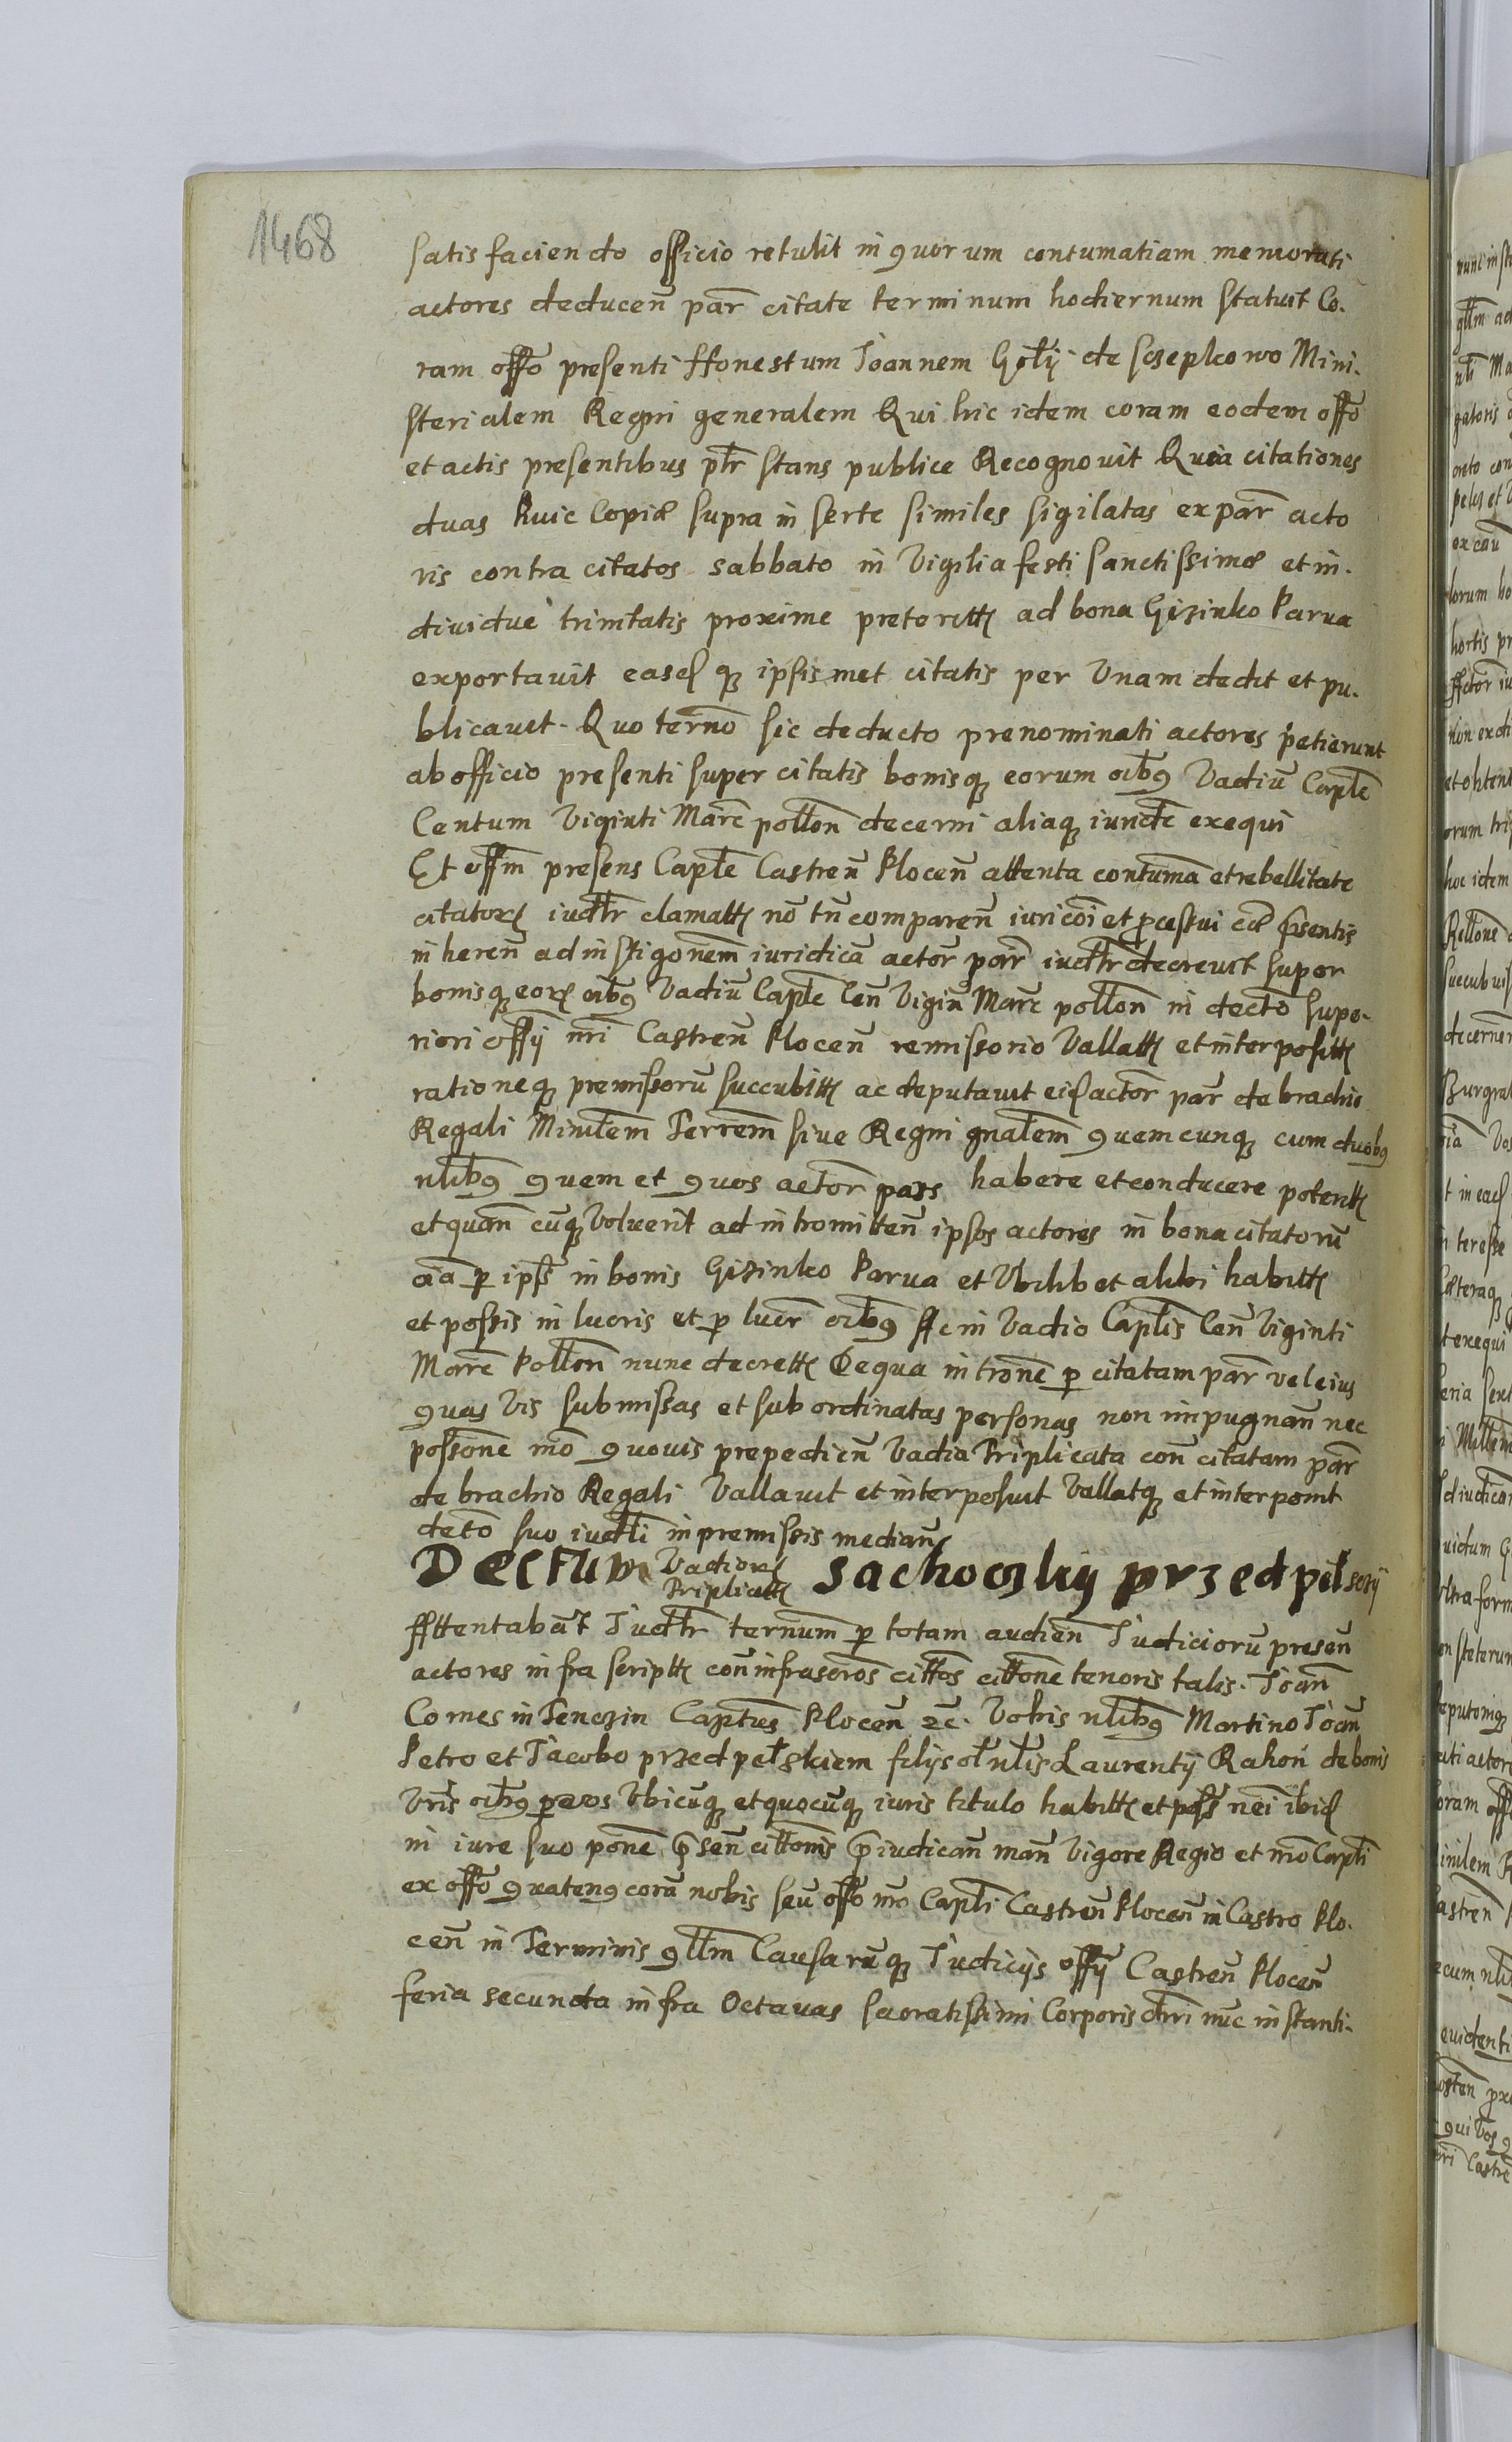 1468
satis faciendo officio retulit in quorum contumatiam memorati
actores deducen̄ par̄ citate terminum hodiernum statuit Co.
ram offō presenti Honestum Joannem Gołÿ de Sczepkowo Mini.
sterialem Regni generalem Qui hic idem coram eodem offō
et actis presentibus pt̄r stans publice Recognovit Quia citationes
duas huic Copiæ supra inserte similes sigilatas ex par̄ acto
ris contra citatos sabbato in Vigilia festi sanctissimæ et in.
dividue trinitatis proxime preteritt ad bona Gizinko Parva
exportavit easd q; ipsismet citatis per Unam dedit et pu.
blicavit. Quo ternō sic deducto prenominati actores petierunt
ab officio presenti super citatis bonisq; eorum oib9 Vadiū Captl̄e
Centum Viginti Marc̄ pollon̄ decerni aliaq; iurid̄e exequi
Et offm̄ presens Captl̄e Castren̄ Plocen̄ attenta contumā et rebellitate
citator iudtr̄ clamatt nō tn̄ comparen̄ iuri cōi et pcessui cā pn̄sentis
in heren̄ ad instigonem̄ iuridicā actor̄ par̄ iudtr̄ decrevit super
bonisq; eor oib9 Vadiū Captl̄e Cen̄ Vigin̄ Marc̄ pollon̄ in dectō supe.
riori offÿ nr̄i Castren̄ Plocen̄ remissorio Vallatt et interpositt
rationeq; premissorū succubitt ac deputavit eid actor̄ par̄ de brachio
Regali Minitem̄ Terrem̄ sive Regni gnalem̄ quemcunq; cum duob9
nlib9 quem et quos actor̄ pars habere et conducere poterit
et quan̄ cūq; Voluerit ad intromitten̄ ipsos actores in bona citatorū
oīa p ipss̄ in bonis Gizinko Parva et Ubilibet alibi habitt
et possis in lucris et p lucr̄ oib9 Ac in Vadio Captl̄is Cen̄ Viginti
Marc̄ Pollon̄ nunc decrett De qua intronē p citatam par̄ vel eius
quas vis submissas et subordinatas personas non impugnan̄ nec
possonē mō quovis prepedien̄ Vadia Triplicata con̄ citatam par̄
de brachio Regali Vallavit et interposuit Vallatq; et interponit
dctō suo iudtl̄i in premissis median
Dectum Vadior
Triplicatt Sachoczky przedpelsczÿ
Attentabāt Judtr̄ ternum̄ p totam audien̄ Judiciorū presen̄
actores infra scriptt con̄ infrascros̄ cittos̄ cittonē tenoris talis. Joan̄
Comes in Tenczin Captneus̄ Plocen̄ zc̄. Vobis nlib9 Martino Joan̄
Petro et Jacobo przedpelskiem filÿs ol̄ nl̄is Laurentÿ Rahoń de bonis
Vr̄is oib9 p vos Ubicūq; et quocūq; iuris titulo habitt et poss̄ nēi ibid
in iure suo ponē pn̄sen̄ cittonis̄ piudican̄ man̄ Vigore Regio et mō Captl̄i
ex offō quaten9 corā nobis seu offō nr̄o Captl̄i Castren̄ Plocen̄ in Castro Plo.
cen̄ in Terminis qllm̄ Causarūq; Judicÿs offÿ Castren̄ Plocen̄
feria secunda infra Octavas sacratissimi Corporis dn̄i nūc instanti.